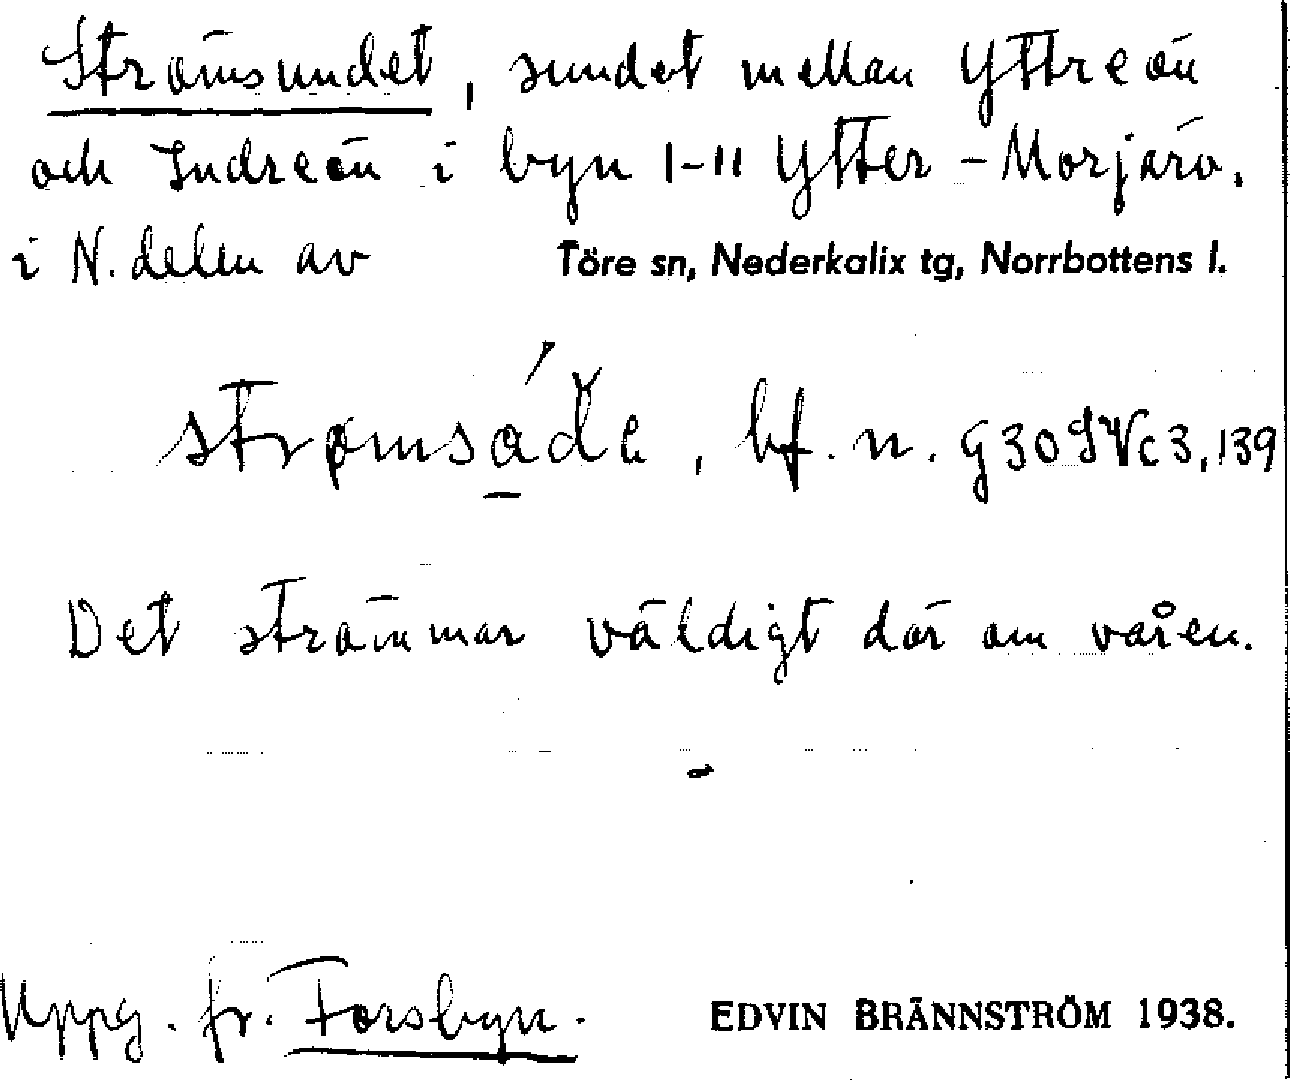 Strömsundet, sundet mellan Yttreön
och Indreön i byn 1-11 Ytter-Morjärv,
i N. delen av Töre sn, Nederkalix tg, Norrbottens l.
bf. n. G 30 SVc 3,139
Det strömmar väldigt där om våren.
Uppg. fr. Forsbyn.
EDVIN BRÄNNSTRÖM 1938.